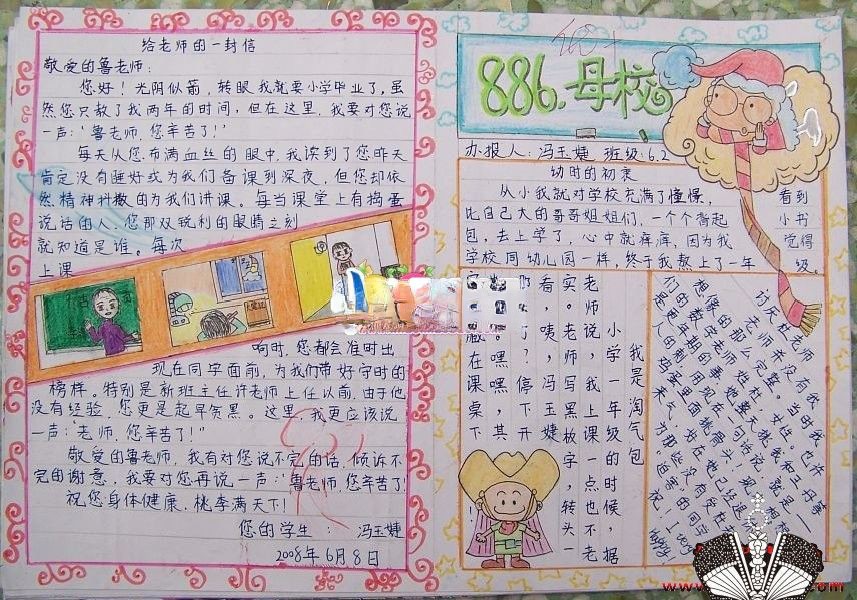 给老师的一封信
敬爱的鲁老师:
您好!光阴似箭,转眼我就要小学毕业了,虽
然您只教了我两年的时间,但在这里,我要对您说
一声:“鲁老师,您辛苦了!”
每天从您布满血丝的眼中,我读到了您昨天
肯定没有睡好或为我们备课到深夜,但您却依
然精神抖擞的为我们讲课。每当课堂上有捣蛋
说话的人,您那双锐利的眼睛立刻
就知道是谁。每次
上课
响时,您都会准时出
现在同学面前,为我们带好守时的
榜样。特别是新班主任许老师上任以前,由于他
没有经验,您更是起早贪黑。这里,我更应该说
一声:“老师,您辛苦了!”
敬爱的鲁老师,我有对您说不完的话,倾诉不
完的谢意,我要对您再说一声:“鲁老师,您辛苦了!
祝您身体健康,桃李满天下!
您的学生: 冯玉婕
2008年6月8日
886.母校
办报人:冯玉婕 班级:6.2
幼时的初衷
从小我就对学校充满了憧憬, 看到
比自己大的哥哥姐姐们,一个个背起 小书
包,去上学了,心中就痒痒,因为我 觉得
学校同幼儿园一样,终于我熬上了一年 级。
我是淘气包
小学上年级的时候,据
老师说,我一课一点也不老
实。老师写黑板放字,转头一
看,咦?冯玉婕
嘿嘿,停下
在课桌下
讨厌杜老师
老师并没有我
想像的那么完整。当时我
们的数学老师姓杜,女性。也许
是更年期的事,她整天挑我和王舟等
人的刺,用现在一句话说,就是——
鸡蛋里面挑骨头